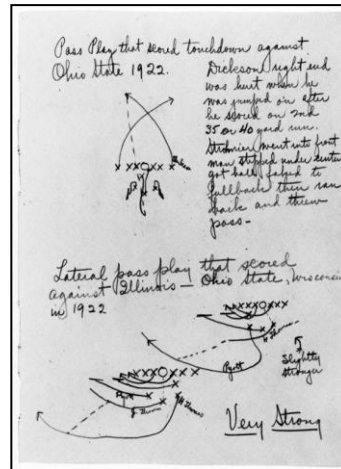 Pass Play that scored touchdown against
Ohio State 1922.
Dickson right end
was hurt when he
was jumped on after
he scored on 2nd
35 or 40 yard run.
went into front
man stepped under center
got ball faked to
fullback then ran
back and threw
pass-
Lateral pass play that scored
against Illinois - Ohio State, Wisconsin
in 1922
Pyott
J. Thomas
Slightly
stronger
Very Strong